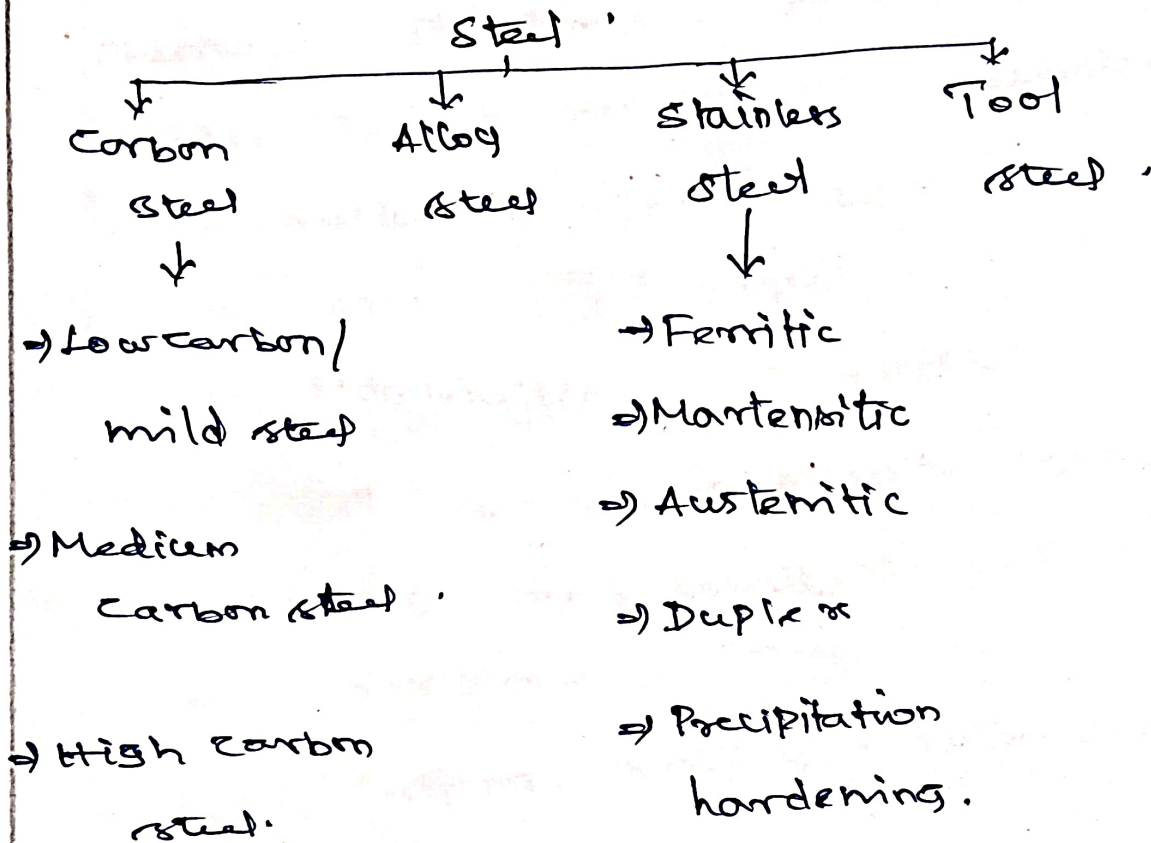 Steel
Carbon
steel
Alloy
steel
Stainless
steel
Tool
steel.
⇒ Low carbon/
mild steel
⇒ Medium
carbon steel.
⇒ High carbon
steel.
⇒ Ferritic
⇒ Martensitic
⇒ Austenitic
⇒ Duplex
⇒ Precipitation
hardening.